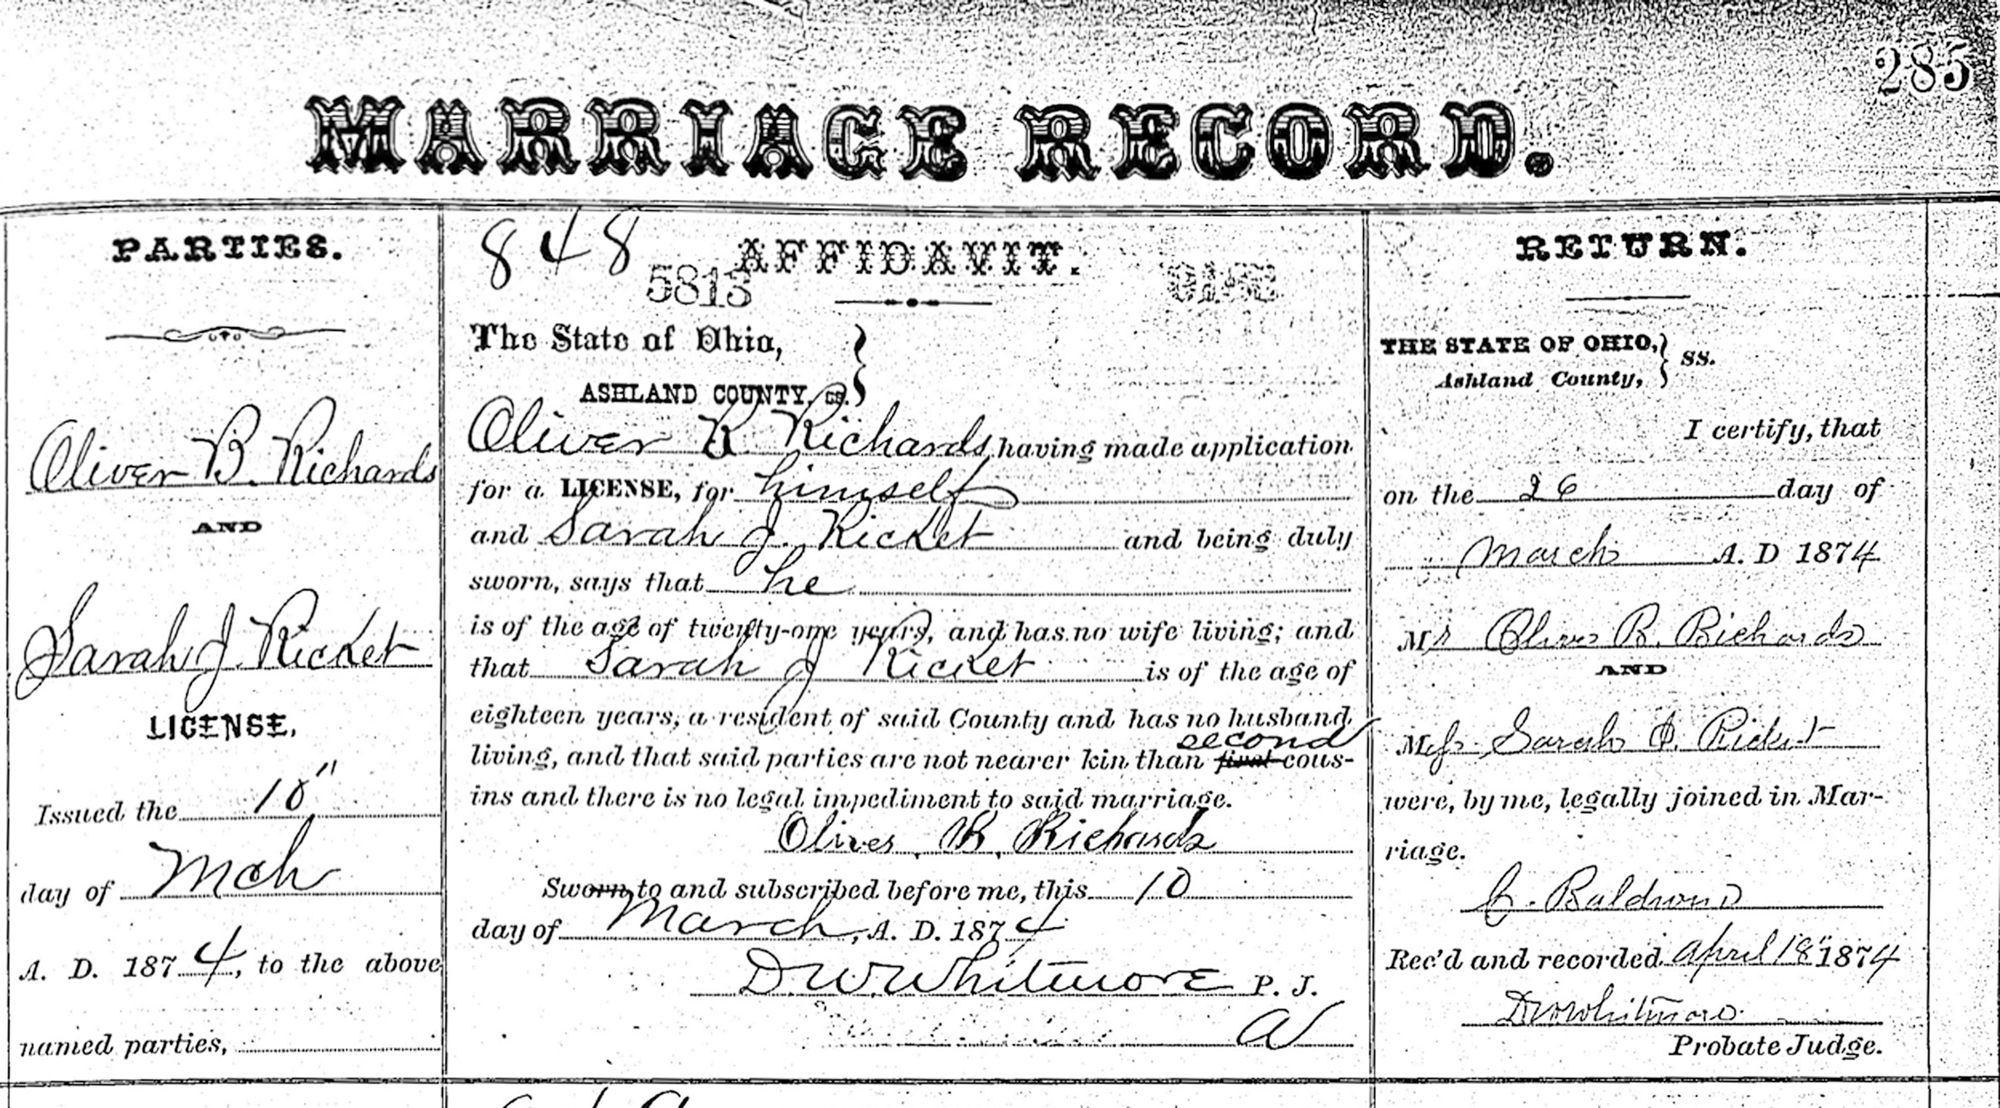 285
MARRIAGE RECORD.
PARTIES.
Oliver B. Richards
AND
Sarah J. Ricket
LICENSE,
Issued the 10"
day of Mch
A. D. 1874, to the above
named parties,
848
5813
AFFIDAVIT.
The State of Ohio,
ASHLAND COUNTY, ss.
Oliver B. Richards, having made application
for a LICENSE, for himself
and Sarah J. Ricket and being duly
sworn, says that he
is of the age of twenty-one years, and has no wife living; and
that Sarah J Ricket is of the age of
eighteen years, a resident of said County and has no husband
living, and that said parties are not nearer kin than second first cous-
ins and there is no legal impediment to said marriage.
Oliver B. Richards
Sworn to and subscribed before me, this 10
day of March, A. D. 1874
D.W. Whitmore P. J.
RETURN.
THE STATE OF OHIO, ss.
Ashland County,
I certify, that
on the 26 day of
March A. D 1874
Mr Oliver B. Richards
AND
Miss Sarah J. Ricket
were, by me, legally joined in Mar-
riage.
Baldwin
Rec'd and recorded April 18" 1874
DW Whitmore
Probate Judge.